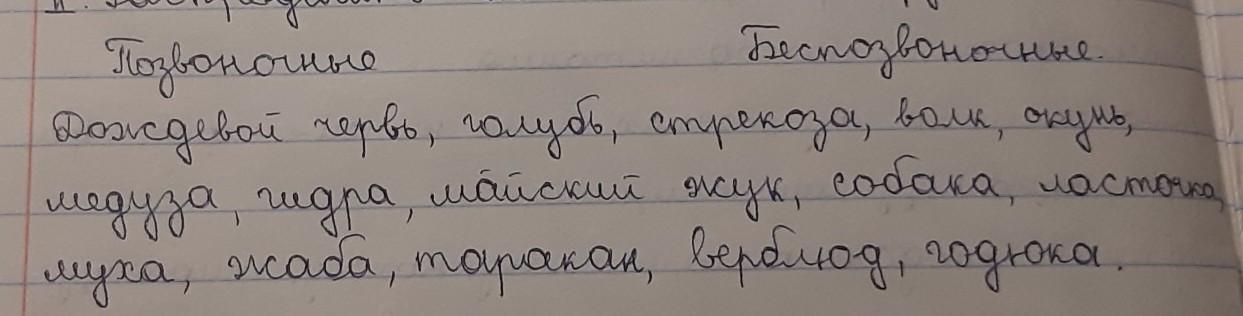 II.
Позвоночные Беспозвоночные.
Дождевой червь, голубь, стрекоза, волк, окунь,
медуза, гидра, майский жук, собака, ласточка,
муха, жаба, таракан, верблюд, гадюка.